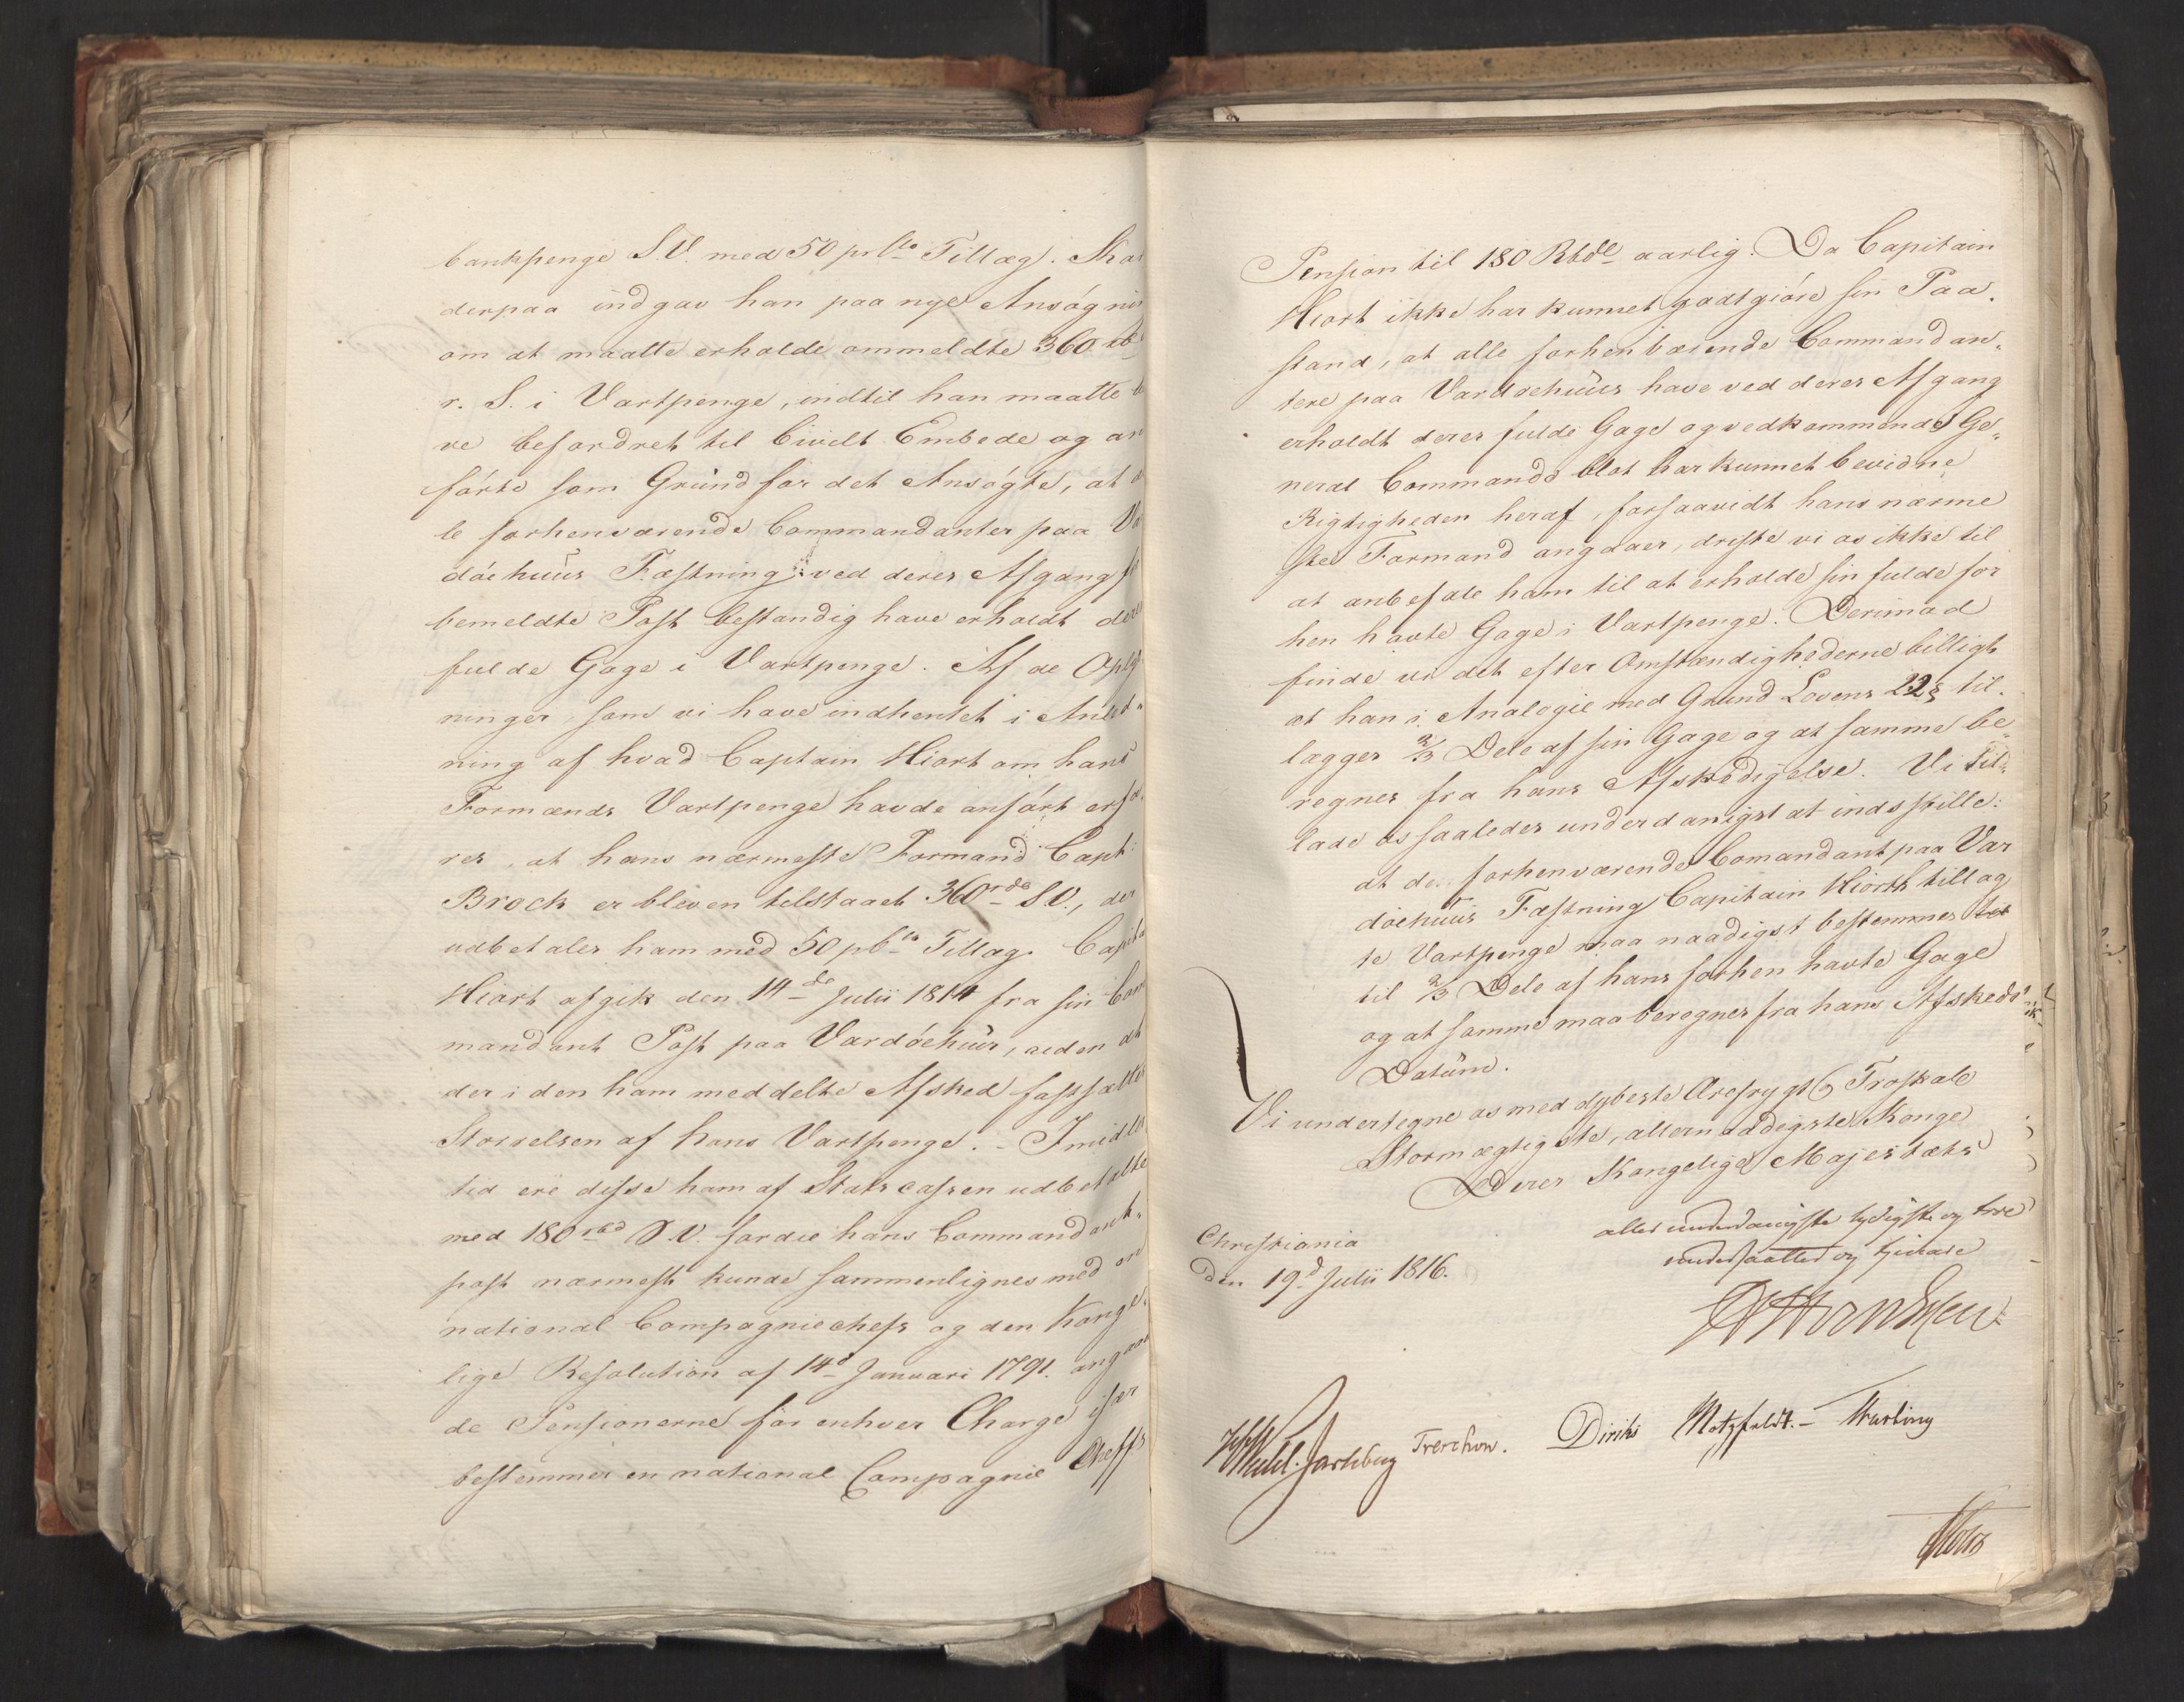 bankpenge S.V. med 50 prCto Tillæg. Skal
derpaa indgav han paa nye Ansøgnin
om at maatte erholde ommeldte 360 rb
r. S. i Vartpenge, indtil han maatte b
ve befordret til Civilt Embede og an
førte som Grund for det Ansøgte, at a
le forhenværende Commandanter paa Va
döehuus Fæstning ved deres Afgang f
bemeldte Post bestandig have erholdt dere
fulde Gage i Vartpenge. Af de Oplys
ninger, som vi have indhentet i Anled-
ning af hvad Captain Hiort om hans
Formænds Vartpenge havde anført erfa-
res, at hans nærmeste Formand Capt:
Brock er bleven tilstaaet 360 rdr S.V., der
udbetales ham med 50 pCto Tillæg. Capita
Hiort afgik den 14de Julii 1814 fra sin Com
mandant Post paa Vardöehuus, uden at
der i den ham meddelte Afsked fastsattes
Størrelsen af hans Vartpenge. - Imidler
tid ere disse ham af Statscassen udbetalte
med 180 rbd S.V. fordie hans Commandant-
post nærmest kunde sammenlignes med en
national Compagniechefs og den Konge-
lige Resolution af 14d Januari 1791. angaaen
de Pensionerne for enhver Charge især
bestemmer en national Compagnie Cheffs
Pension til 180 Rbdl aarlig. Da Capitain
Hiort ikke har kunnet godtgiöre sin Paa-
stand, at alle forhenværende Commandan-
tere paa Vardöehuus have ved deres Afgang
erholdt deres fulde Gage og vedkommende Ge-
neral Commando blot har kunnet bevidne
Rigtigheden heraf, forsaavidt hans nærme
ste Formand angaaer, driste vi os ikke til
at anbefale ham til at erholde sin fulde for
hen havte Gage i Vartpenge. Derimod
finde vi det efter Omstændighederne billigt
at han i Analogie med Grund Lovens 22§ til-
lægges 2/3 Dele af sin Gage og at samme be-
regnes fra hans Afskedigelse. Vi til-
lade os saaledes underdanigst at indstille:
at den forhenværende Comandant paa Var
döehuus Fæstning Capitain Hiorth tillag
te Vartpenge maa naadigst bestemmes til
til 2/3 Dele af hans forhen havte Gage
og at samme maa beregnes fra hans Afskeds
Datum.
Vi undertegne os med dybeste Ærefrygt og Troskab
Stormægtigste, allernaadigste Konge
Deres Kongelige Majestæts
allerunderdanigste lydigste og troe
undersaatter og tjenere
Christiania
den 19d Julii 1816.
Treschow. Diriks Motzfeldt.-